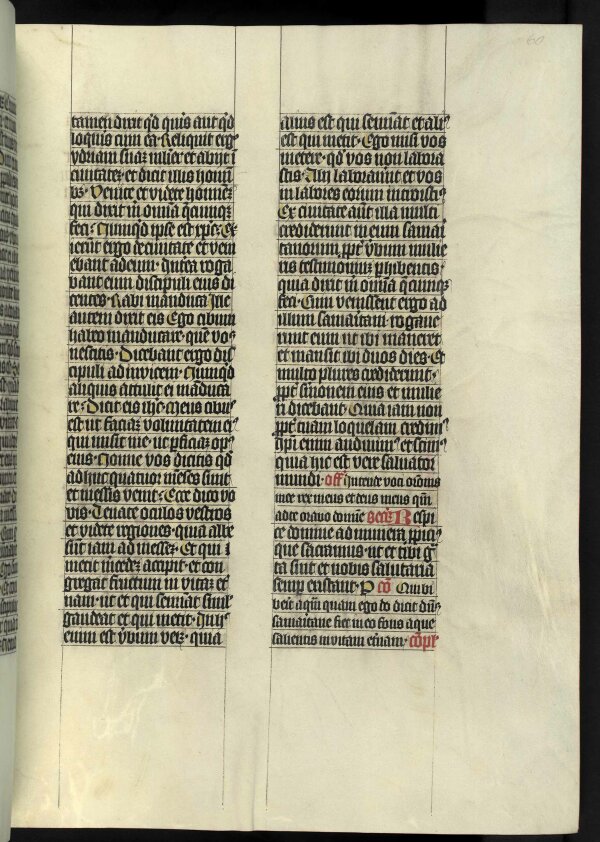 tamen dixit qd quis aut qd
loquis cum ea Reliquit erg
ydriam suam mulier et abiit i
civitatez et dicit illis homi
bz Venite et videte homine
qui dixit m omia quecumqz
feci Numqd ipse est xpc Ex
ierut ergo de civitate et veni
ebant ad eum Interea roga
bant eum discipuli eius di
centes Rabi manduca Ille
autem dixit eis Ego cibum
habeo manducare que vos
nescitis Dicebant ergo dis
cipuli adinvicem Numqd
aliquis attulit ei maduca
re Dicit eis ihc Meus cibus
est ut facia voluntatem ei
qui misit me ut pficiaz op
eius Nonne vos dicitis qd
adhuc quatuor meses sunt
et messis venit Ecce dico vo
vis Levate oculos vestros
et videte regiones quia albe
sut iam ad messez Et qui
metit mcedez accipit et con
gregat fructum in vitaz et
nam ut et qui seminat simul
gaudeat et qui metit In h
enim est vbum vez quia
alius est qui seminat et ali
est qui metit Ego misi vos
metere qd vos non labora
stis Alii laboraverut et vos
in labores eorum introisti
Ex civitate aut illa multi
crediderunt in eum samai
tanorum ppt vbum mulie
ris testimonium phibentis
quia dixit m omia quecumqz
feci Cum venissent ergo ad
illum samaitani rogave
runt eum ut ibi maneret
et mansit ibi duos dies Et
multo plures crediderunt
ppt smonem eius et mulie
ri dicebant Quia iam non
ppt tuam loquelam credim
ipsi enim audivim et scim
quia hic est vere salvator
mundi off Intende voci oronis
mee rex meus et deus meus qm
ad te orabo domine Secr Respi
ce domine ad munera ppici
que sacramus ut et tibi g
ta sint et nobis salutaria
semp existant Co Qui bi
berit aqua quam ego do dicit dns
samaritane fiet in eo fons aque
salientis in vitam etnam Copl